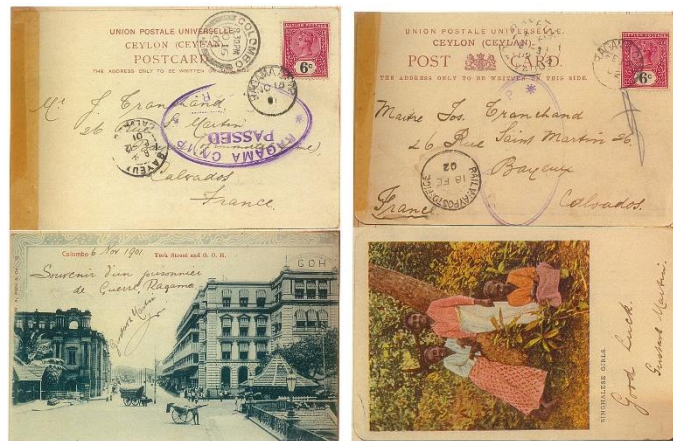 UNION POSTALE UNIVERSELLE.
CEYLON (CEYLAN)
POSTCARD.
THE ADDRESS ONLY TO BE WRITTEN ON THIS SIDE.
COLOMBO
6c
RAGAMA CAMP
PASSED
Mr J. Tranchand
26 Rue St Martin
BAYEUX
Calvados
France.
Colombo 6 Nov 1901
York Street and G. O. H.
GOH
Souvenir d'un prisonnier
de Guerre Ragama
Gustave Martin
UNION POSTALE UNIVERSELLE.
CEYLON (CEYLAN)
POST CARD.
THE ADDRESS ONLY TO BE WRITTEN ON THIS SIDE.
6c
Maitre Jos. Tranchand
26 Rue Saint Martin 26.
Bayeux
Calvados.
France
RAILWAY POST OFFICE
18 FE
02
SINGHALESE GIRLS.
Good Luck.
Gustave Martin.